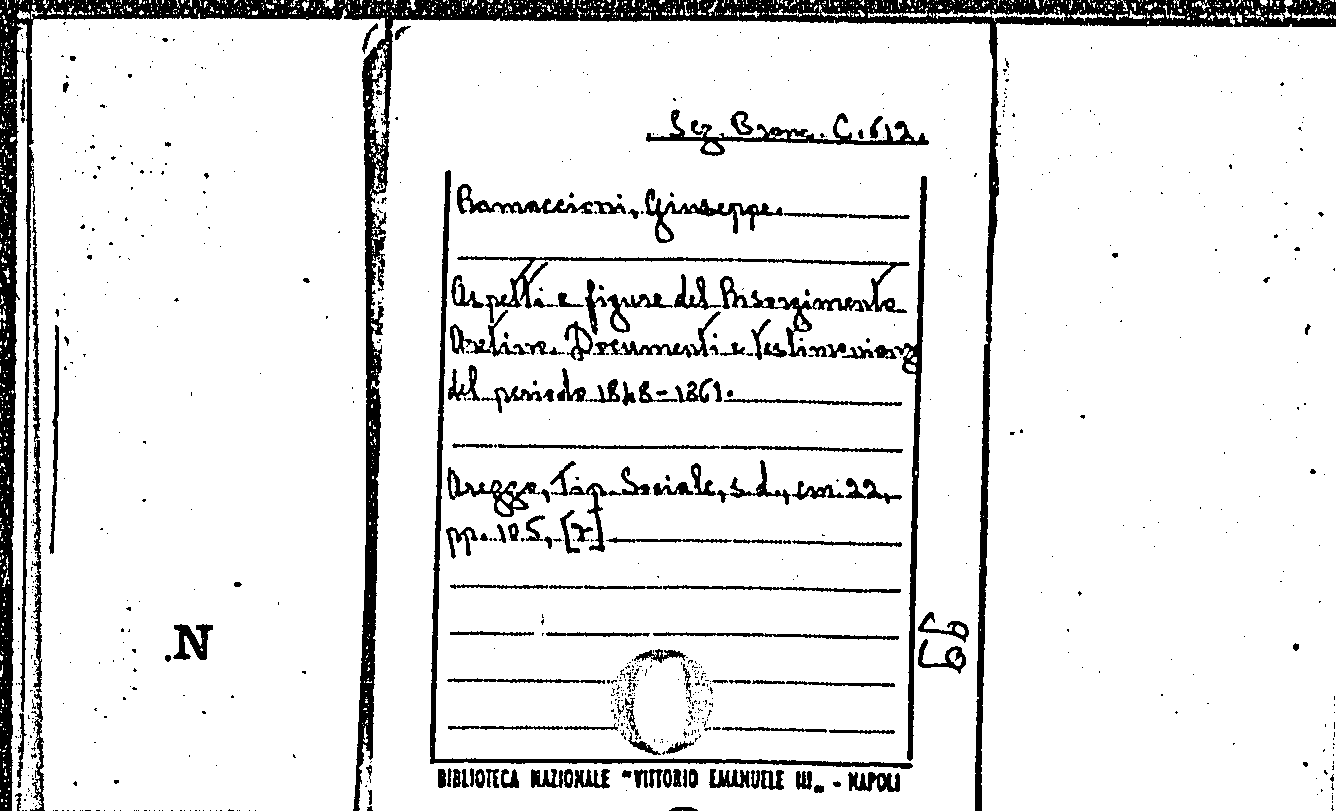 Sez. Branc. C. 612.
Ramaccioni, Giuseppe.
Aspetti e figure del Risorgimento
Aretino. Documenti e testimonianz
del periodo 1848-1861.
Arezzo, Tip. Sociale, s.d., cm. 22,
pp. 185, [2]
66
.N
BIBLIOTECA NAZIONALE "VITTORIO EMANUELE III„ - NAPOLI